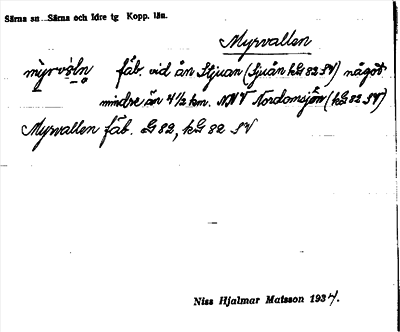 Särna sn Särna och Idre tg Kopp. län.
Myrvallen
myrvsln fäb. vid ån Stjuan (Sjuån kG 82 SV) något
mindre än 4 1/2 km. NNV Nordomsjön (kG 82 SV)
Myrvallen fäb. G 82, kG 82 SV
Niss Hjalmar Matsson 1934.